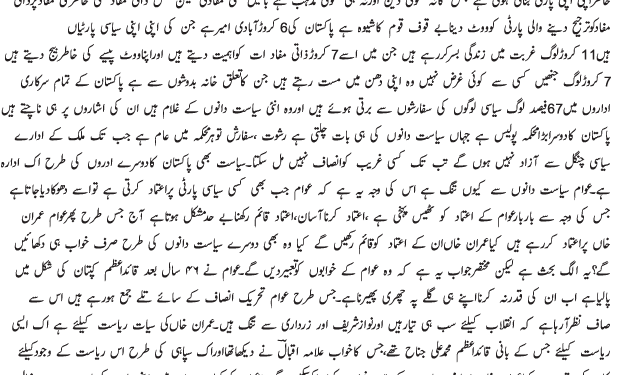 مفاد کو ترجیح دینے والی پارٹی کو ووٹ دینا بے قوف قوم کا شیوہ ہے پاکستان کی 6 کروڑ آبادی امیر ہے جن کی اپنی اپنی سیاسی پارٹیاں
ہیں 11 کروڑ لوگ غربت میں زندگی بسر کر رہے ہیں جن میں اسے 7 کروڑ ذاتی مفاد ات کو اہمیت دیتے ہیں اور اپنا ووٹ پیسے کی خاطر بیچ دیتے ہیں
7 کروڑ لوگ جنھیں کسی سے کوئی غرض نہیں وہ اپنی دھن میں مست رہتے ہیں جن کا تعلق خانہ بدوشوں سے ہے پاکستان کے تمام سرکاری
اداروں میں 67 فیصد لوگ سیاسی لوگوں کی سفارشوں سے برتی ہوئے ہیں اور وہ انئی سیاست دانوں کے غلام ہیں ان کی اشاروں پر ہی ناچتے ہیں
پاکستان کا دوسرا بڑا محکمہ پولیس ہے جہاں سیاست دانوں کی ہی بات چلتی ہے رشوت ،سفارش توہر محکمہ میں عام ہے جب تک ملک کے ادارے
سیاسی چنگل سے آزاد نہیں ہوں گے تب تک کسی غریب کو انصاف نہیں مل سکتا۔سیاست بھی پاکستان کا دوسرے ادروں کی طرح اک ادارہ
ہے۔عوام سیاست دانوں سے کیوں تنگ ہے اس کی وجہ یہ ہے کہ عوام جب بھی کسی سیاسی پارٹی پر اعتماد کرتی ہے تو اسے دھوکا دیا جاتا ہے
جس کی وجہ سے بار بار عوام کے اعتماد کو ٹھیس پہنچی ہے ،اعتماد کرنا آسان،اعتماد قائم رکھنا بے حد مشکل ہوتا ہے آج جس طرح پھر عوام عمران
خاں پر اعتماد کر رہے ہیں کیا عمران خاں ان کے اعتماد کو قائم رکھیں گے کیا وہ بھی دوسرے سیاست دانوں کی طرح صرف خواب ہی دکھائیں
گے؟یہ الگ بحث ہے لیکن مختصر جواب یہ ہے کہ وہ عوام کے خوابوں کو تعبیر دیں گے۔عوام نے ۴۶ سال بعد قائد اعظم کپتان کی شکل میں
پالیا ہے اب ان کی قدر نہ کرنا اپنے ہی گلے پہ چھری پھیرنا ہے۔جس طرح عوام تحریک انصاف کے سائے تلے جمع ہو رہے ہیں اس سے
صاف نظر آ رہا ہے کہ انقلاب کیلئے سب ہی تیار ہیں اور نواز شریف اور زرداری سے تنگ ہیں۔عمران خاں کی سیات ریاست کیلئے ہے اک ایسی
ریاست کیلئے جس کے بانی قائد اعظم محمد علی جناح تھے،جس کا خواب علامہ اقبالؒ نے دیکھا تھا اور اک سپاہی کی طرح اس ریاست کے وجود کیلئے